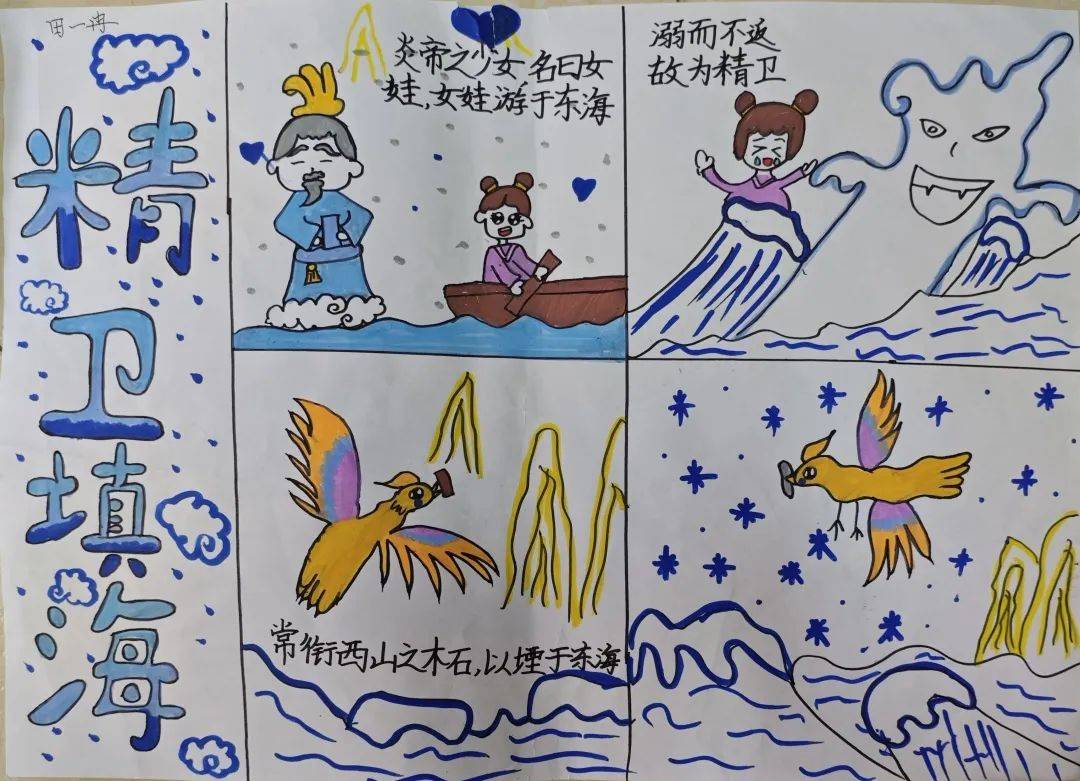 田一冉
精卫填海
炎帝之少女名曰女
娃,女娃游于东海
溺而不返
故为精卫
常衔西山之木石,以堙于东海